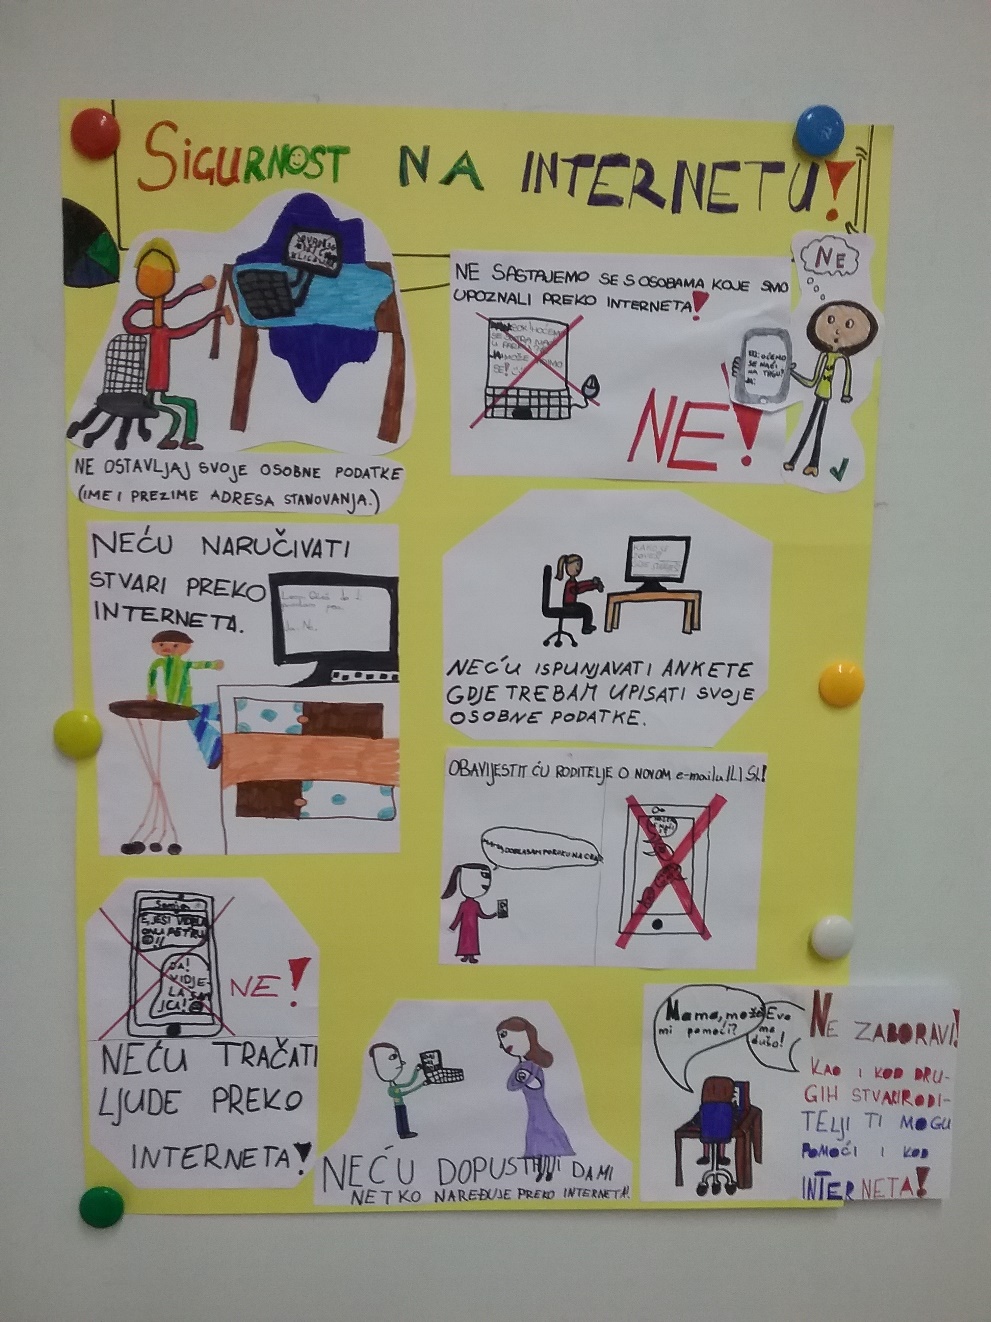 SIGURNOST NA INTERNETU!
NE OSTAVLJAJ SVOJE OSOBNE PODATKE
(IME I PREZIME ADRESA STANOVANJA.)
NE SASTAJEMO SE S OSOBAMA KOJE SMO
UPOZNALI PREKO INTERNETA!
NE!
NE
OĆEMO
SE NAĆI
NA TRGU?
JA:
NEĆU NARUČIVATI
STVARI PREKO
INTERNETA.
NEĆU ISPUNJAVATI ANKETE
GDJE TREBAM UPISATI SVOJE
OSOBNE PODATKE.
OBAVIJESTIT ĆU RODITELJE O NOVOM e-mailu ILI SL!
DOBILA SAM PORUKU NA
EJ, ESI VIDJELA
ONU PETRU
DA!
VIDJE-
LA SAM
JU!
NE!
NEĆU TRAČATI
LJUDE PREKO
INTERNETA!
NEĆU DOPUSTITI DA MI
NETKO NAREĐUJE PREKO INTERNETA!
Mama, može
mi pomoći?
Evo
me
dušo!
NE ZABORAVI!
KAO I KOD DRU-
GIH STVARI RODI-
TELJI TI MOGU
POMOĆI I KOD
INTERNETA!